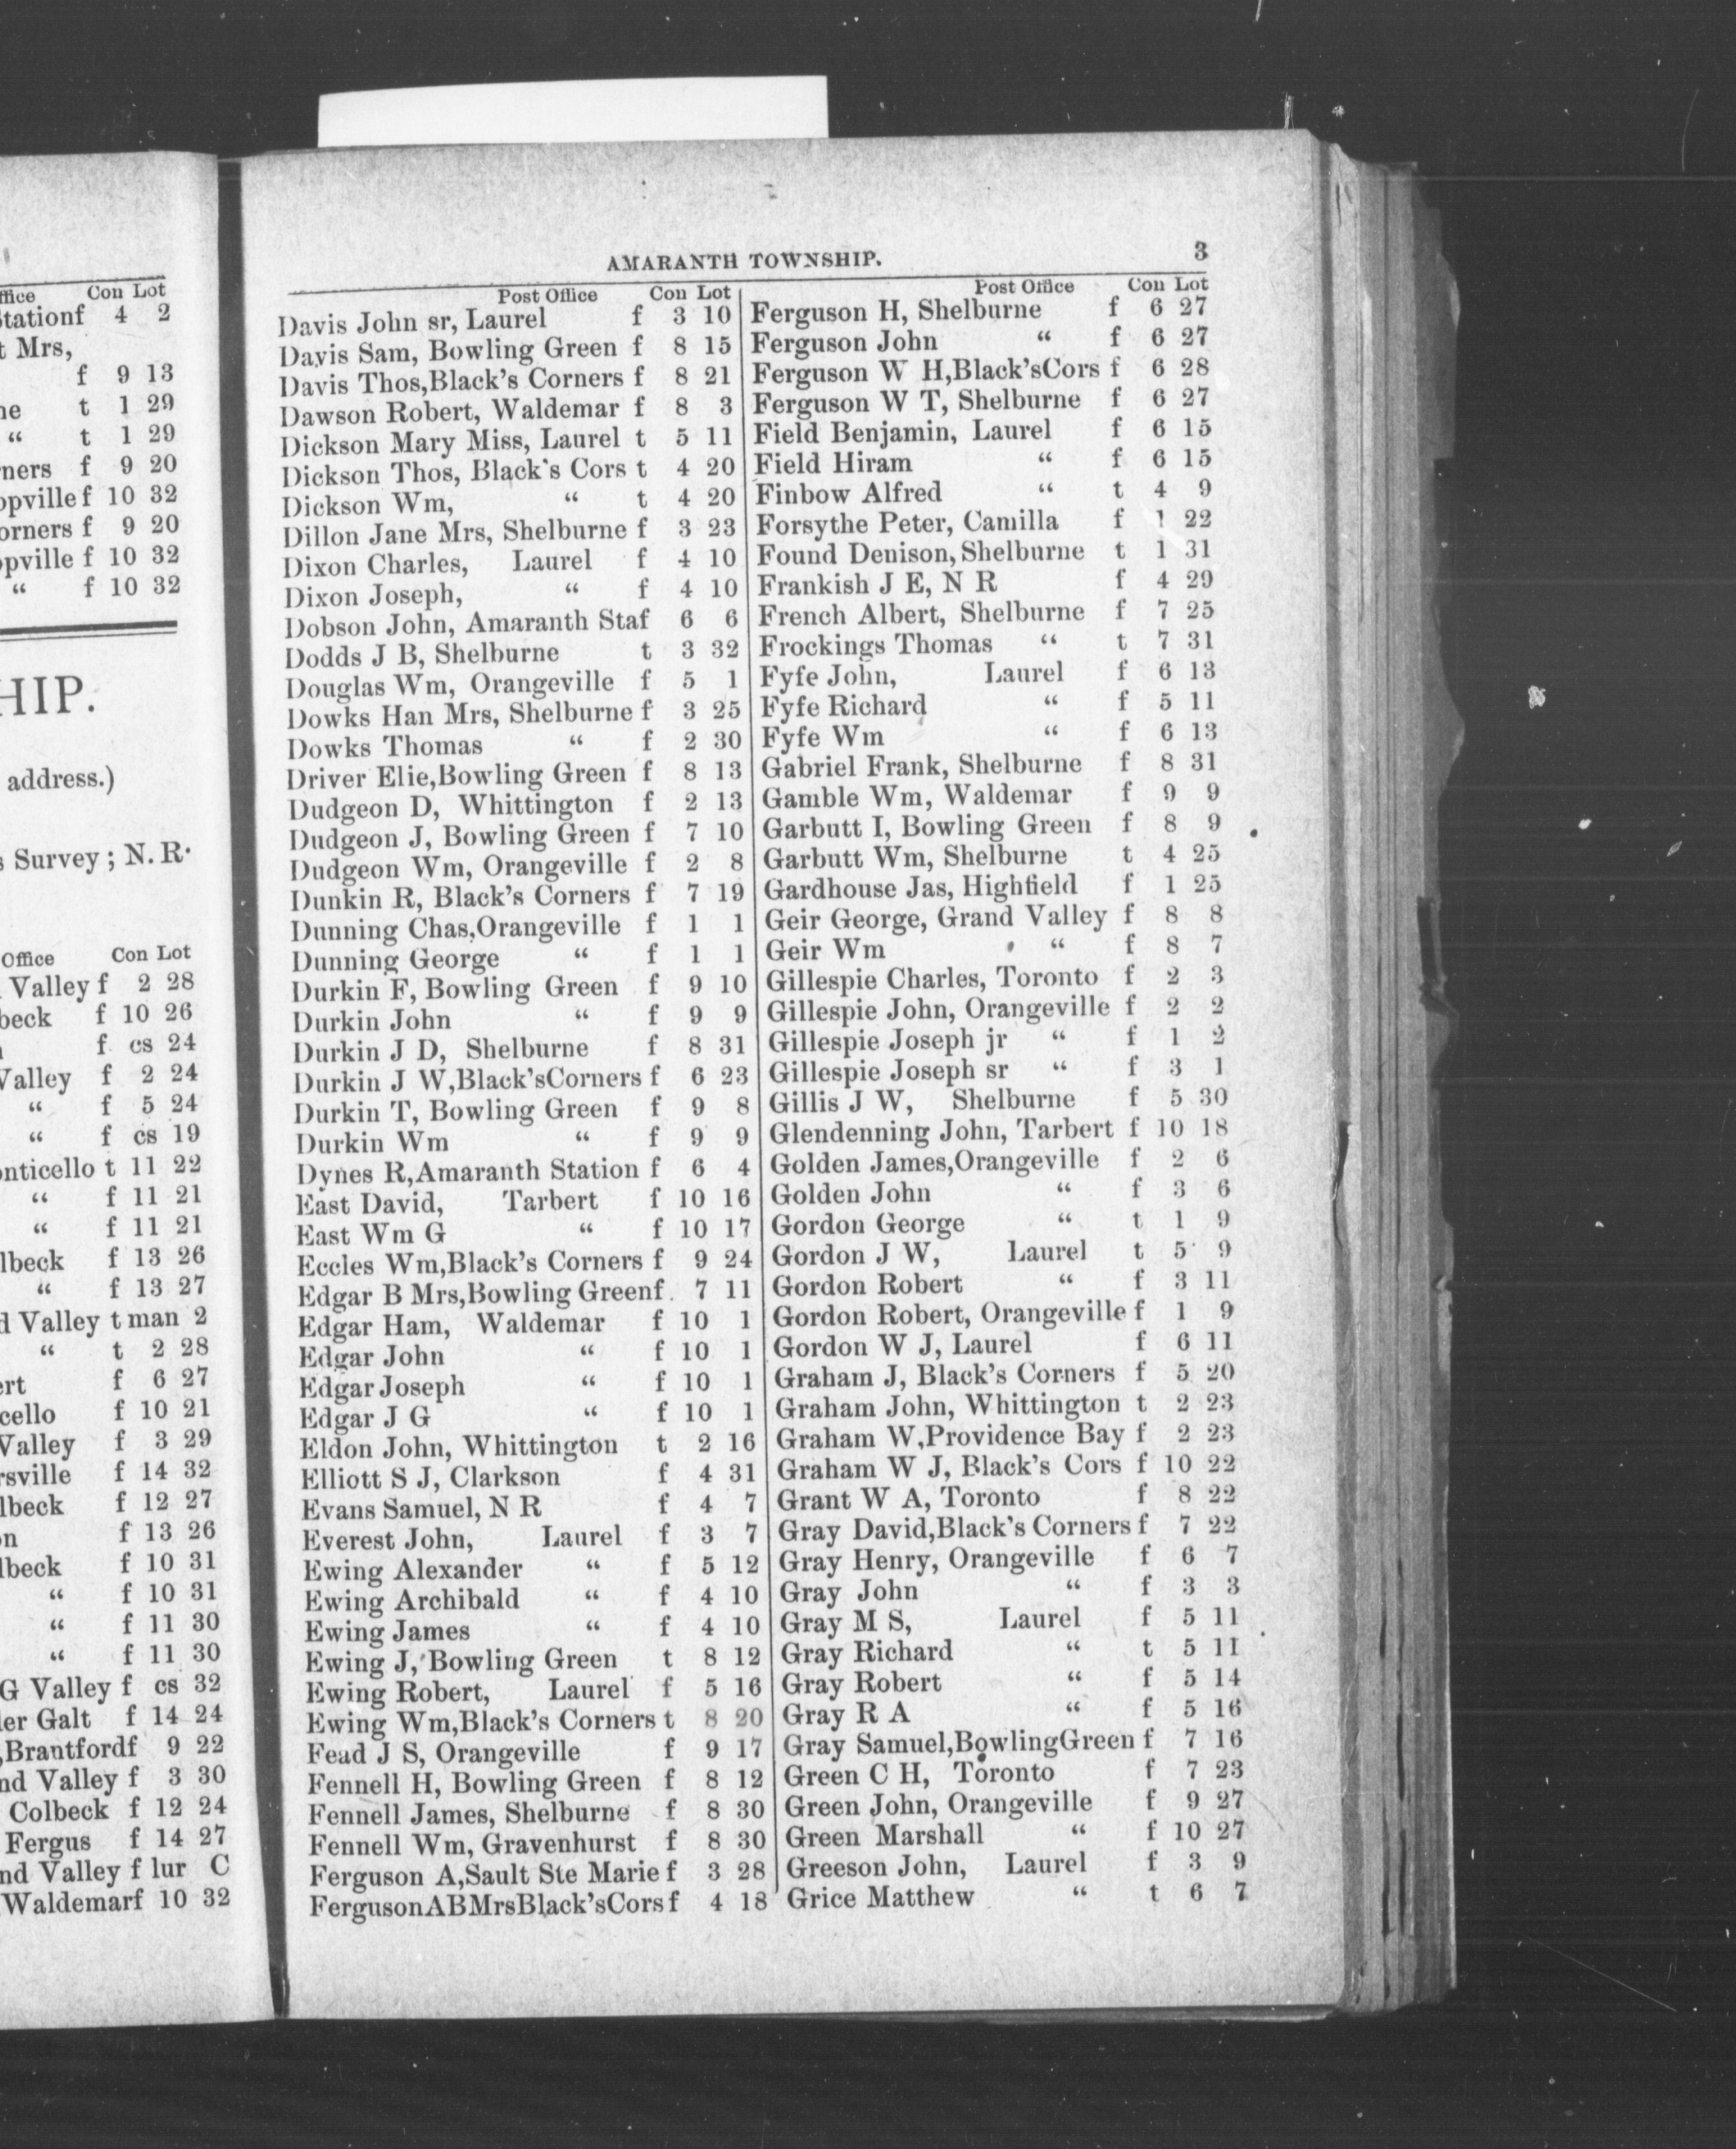 ffice Con Lot
tationf 4 2
t Mrs,
f 9 13
ne t 1 29
“ t 1 29
ners f 9 20
opville f 10 32
orners f 9 20
pville f 10 32
“ f 10 32
HIP.
address.)
s Survey ; N. R.
Office Con Lot
Valley f 2 28
beck f 10 26
f cs 24
Valley f 2 24
“ f 5 24
“ f cs 19
onticello t 11 22
“ f 11 21
“ f 11 21
lbeck f 13 26
“ f 13 27
d Valley t man 2
“ t 2 28
ert f 6 27
cello f 10 21
Valley f 3 29
rsville f 14 32
lbeck f 12 27
on f 13 26
lbeck f 10 31
“ f 10 31
“ f 11 30
“ f 11 30
G Valley f cs 32
ler Galt f 14 24
,Brantfordf 9 22
nd Valley f 3 30
Colbeck f 12 24
Fergus f 14 27
nd Valley f lur C
Waldemarf 10 32
AMARANTH TOWNSHIP. 3
Post Office Con Lot
Davis John sr, Laurel f 3 10
Davis Sam, Bowling Green f 8 15
Davis Thos,Black's Corners f 8 21
Dawson Robert, Waldemar f 8 3
Dickson Mary Miss, Laurel t 5 11
Dickson Thos, Black's Cors t 4 20
Dickson Wm, “ t 4 20
Dillon Jane Mrs, Shelburne f 3 23
Dixon Charles, Laurel f 4 10
Dixon Joseph, “ f 4 10
Dobson John, Amaranth Staf 6 6
Dodds J B, Shelburne t 3 32
Douglas Wm, Orangeville f 5 1
Dowks Han Mrs, Shelburne f 3 25
Dowks Thomas “ f 2 30
Driver Elie,Bowling Green f 8 13
Dudgeon D, Whittington f 2 13
Dudgeon J, Bowling Green f 7 10
Dudgeon Wm, Orangeville f 2 8
Dunkin R, Black's Corners f 7 19
Dunning Chas,Orangeville f 1 1
Dunning George “ f 1 1
Durkin F, Bowling Green f 9 10
Durkin John “ f 9 9
Durkin J D, Shelburne f 8 31
Durkin J W,Black'sCorners f 6 23
Durkin T, Bowling Green f 9 8
Durkin Wm “ f 9 9
Dynes R,Amaranth Station f 6 4
East David, Tarbert f 10 16
East Wm G “ f 10 17
Eccles Wm,Black's Corners f 9 24
Edgar B Mrs,Bowling Greenf. 7 11
Edgar Ham, Waldemar f 10 1
Edgar John “ f 10 1
Edgar Joseph “ f 10 1
Edgar J G “ f 10 1
Eldon John, Whittington t 2 16
Elliott S J, Clarkson f 4 31
Evans Samuel, N R f 4 7
Everest John, Laurel f 3 7
Ewing Alexander “ f 5 12
Ewing Archibald “ f 4 10
Ewing James “ f 4 10
Ewing J, Bowling Green t 8 12
Ewing Robert, Laurel f 5 16
Ewing Wm,Black's Corners t 8 20
Fead J S, Orangeville f 9 17
Fennell H, Bowling Green f 8 12
Fennell James, Shelburne f 8 30
Fennell Wm, Gravenhurst f 8 30
Ferguson A,Sault Ste Marie f 3 28
FergusonABMrsBlack'sCors f 4 18
Post Office Con Lot
Ferguson H, Shelburne f 6 27
Ferguson John “ f 6 27
Ferguson W H,Black'sCors f 6 28
Ferguson W T, Shelburne f 6 27
Field Benjamin, Laurel f 6 15
Field Hiram “ f 6 15
Finbow Alfred “ t 4 9
Forsythe Peter, Camilla f 1 22
Found Denison, Shelburne t 1 31
Frankish J E, N R f 4 29
French Albert, Shelburne f 7 25
Frockings Thomas “ t 7 31
Fyfe John, Laurel f 6 13
Fyfe Richard “ f 5 11
Fyfe Wm “ f 6 13
Gabriel Frank, Shelburne f 8 31
Gamble Wm, Waldemar f 9 9
Garbutt I, Bowling Green f 8 9
Garbutt Wm, Shelburne t 4 25
Gardhouse Jas, Highfield f 1 25
Geir George, Grand Valley f 8 8
Geir Wm “ f 8 7
Gillespie Charles, Toronto f 2 3
Gillespie John, Orangeville f 2 2
Gillespie Joseph jr “ f 1 2
Gillespie Joseph sr “ f 3 1
Gillis J W, Shelburne f 5 30
Glendenning John, Tarbert f 10 18
Golden James,Orangeville f 2 6
Golden John “ f 3 6
Gordon George “ t 1 9
Gordon J W, Laurel t 5 9
Gordon Robert “ f 3 11
Gordon Robert, Orangeville f 1 9
Gordon W J, Laurel f 6 11
Graham J, Black's Corners f 5 20
Graham John, Whittington t 2 23
Graham W,Providence Bay f 2 23
Graham W J, Black's Cors f 10 22
Grant W A, Toronto f 8 22
Gray David,Black's Corners f 7 22
Gray Henry, Orangeville f 6 7
Gray John “ f 3 3
Gray M S, Laurel f 5 11
Gray Richard “ t 5 11
Gray Robert “ f 5 14
Gray R A “ f 5 16
Gray Samuel,BowlingGreen f 7 16
Green C H, Toronto f 7 23
Green John, Orangeville f 9 27
Green Marshall “ f 10 27
Greeson John, Laurel f 3 9
Grice Matthew “ t 6 7